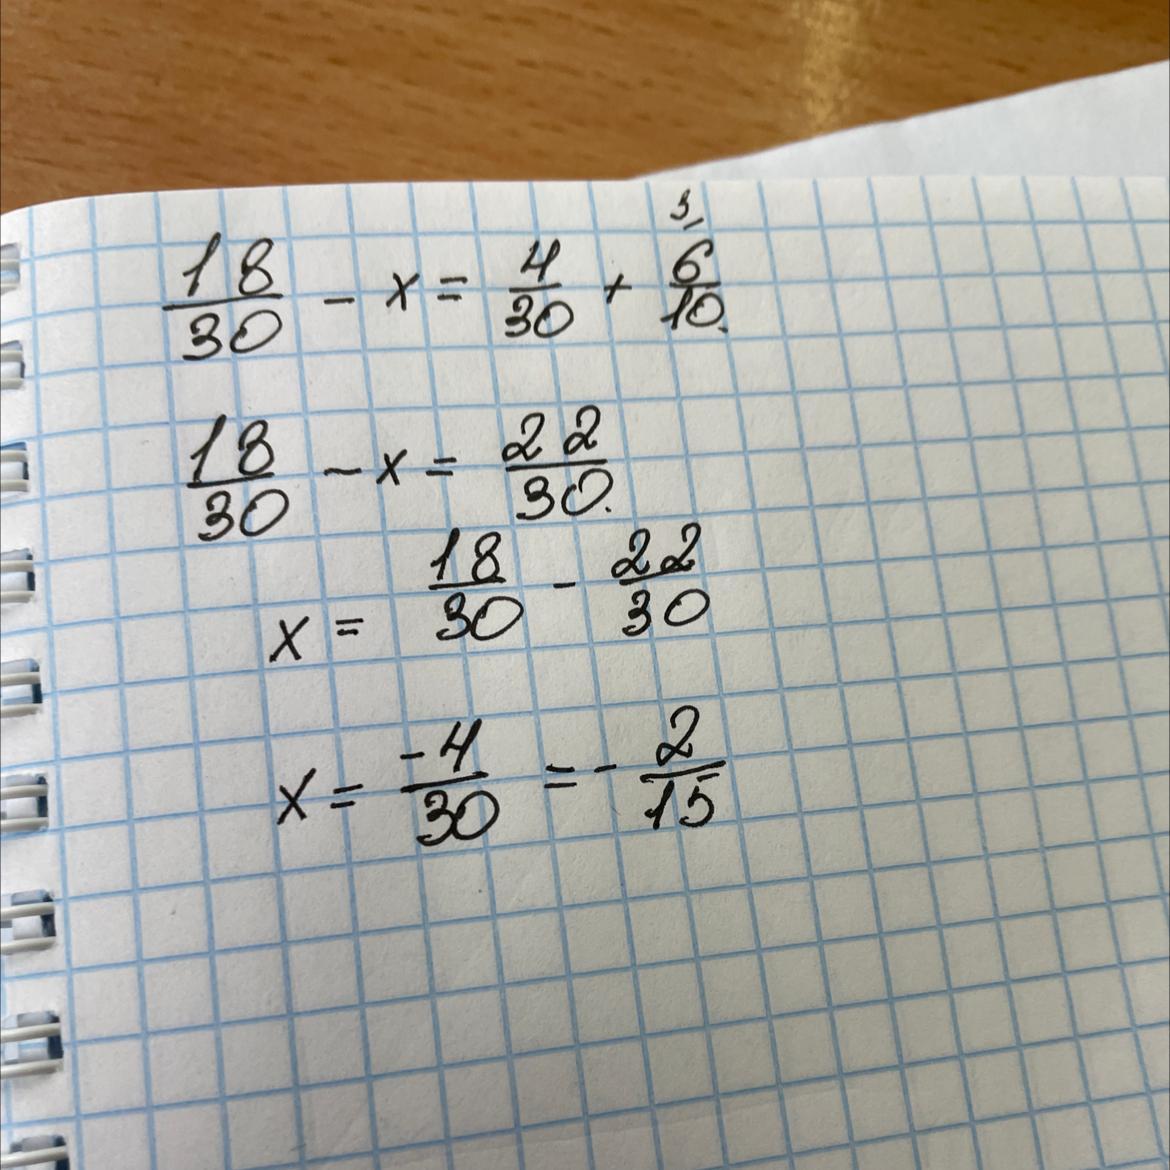 18/30 - x = 4/30 + 6/10. 3/
18/30 - x = 22/30.
x = 18/30 - 22/30
x = -4/30 = - 2/15